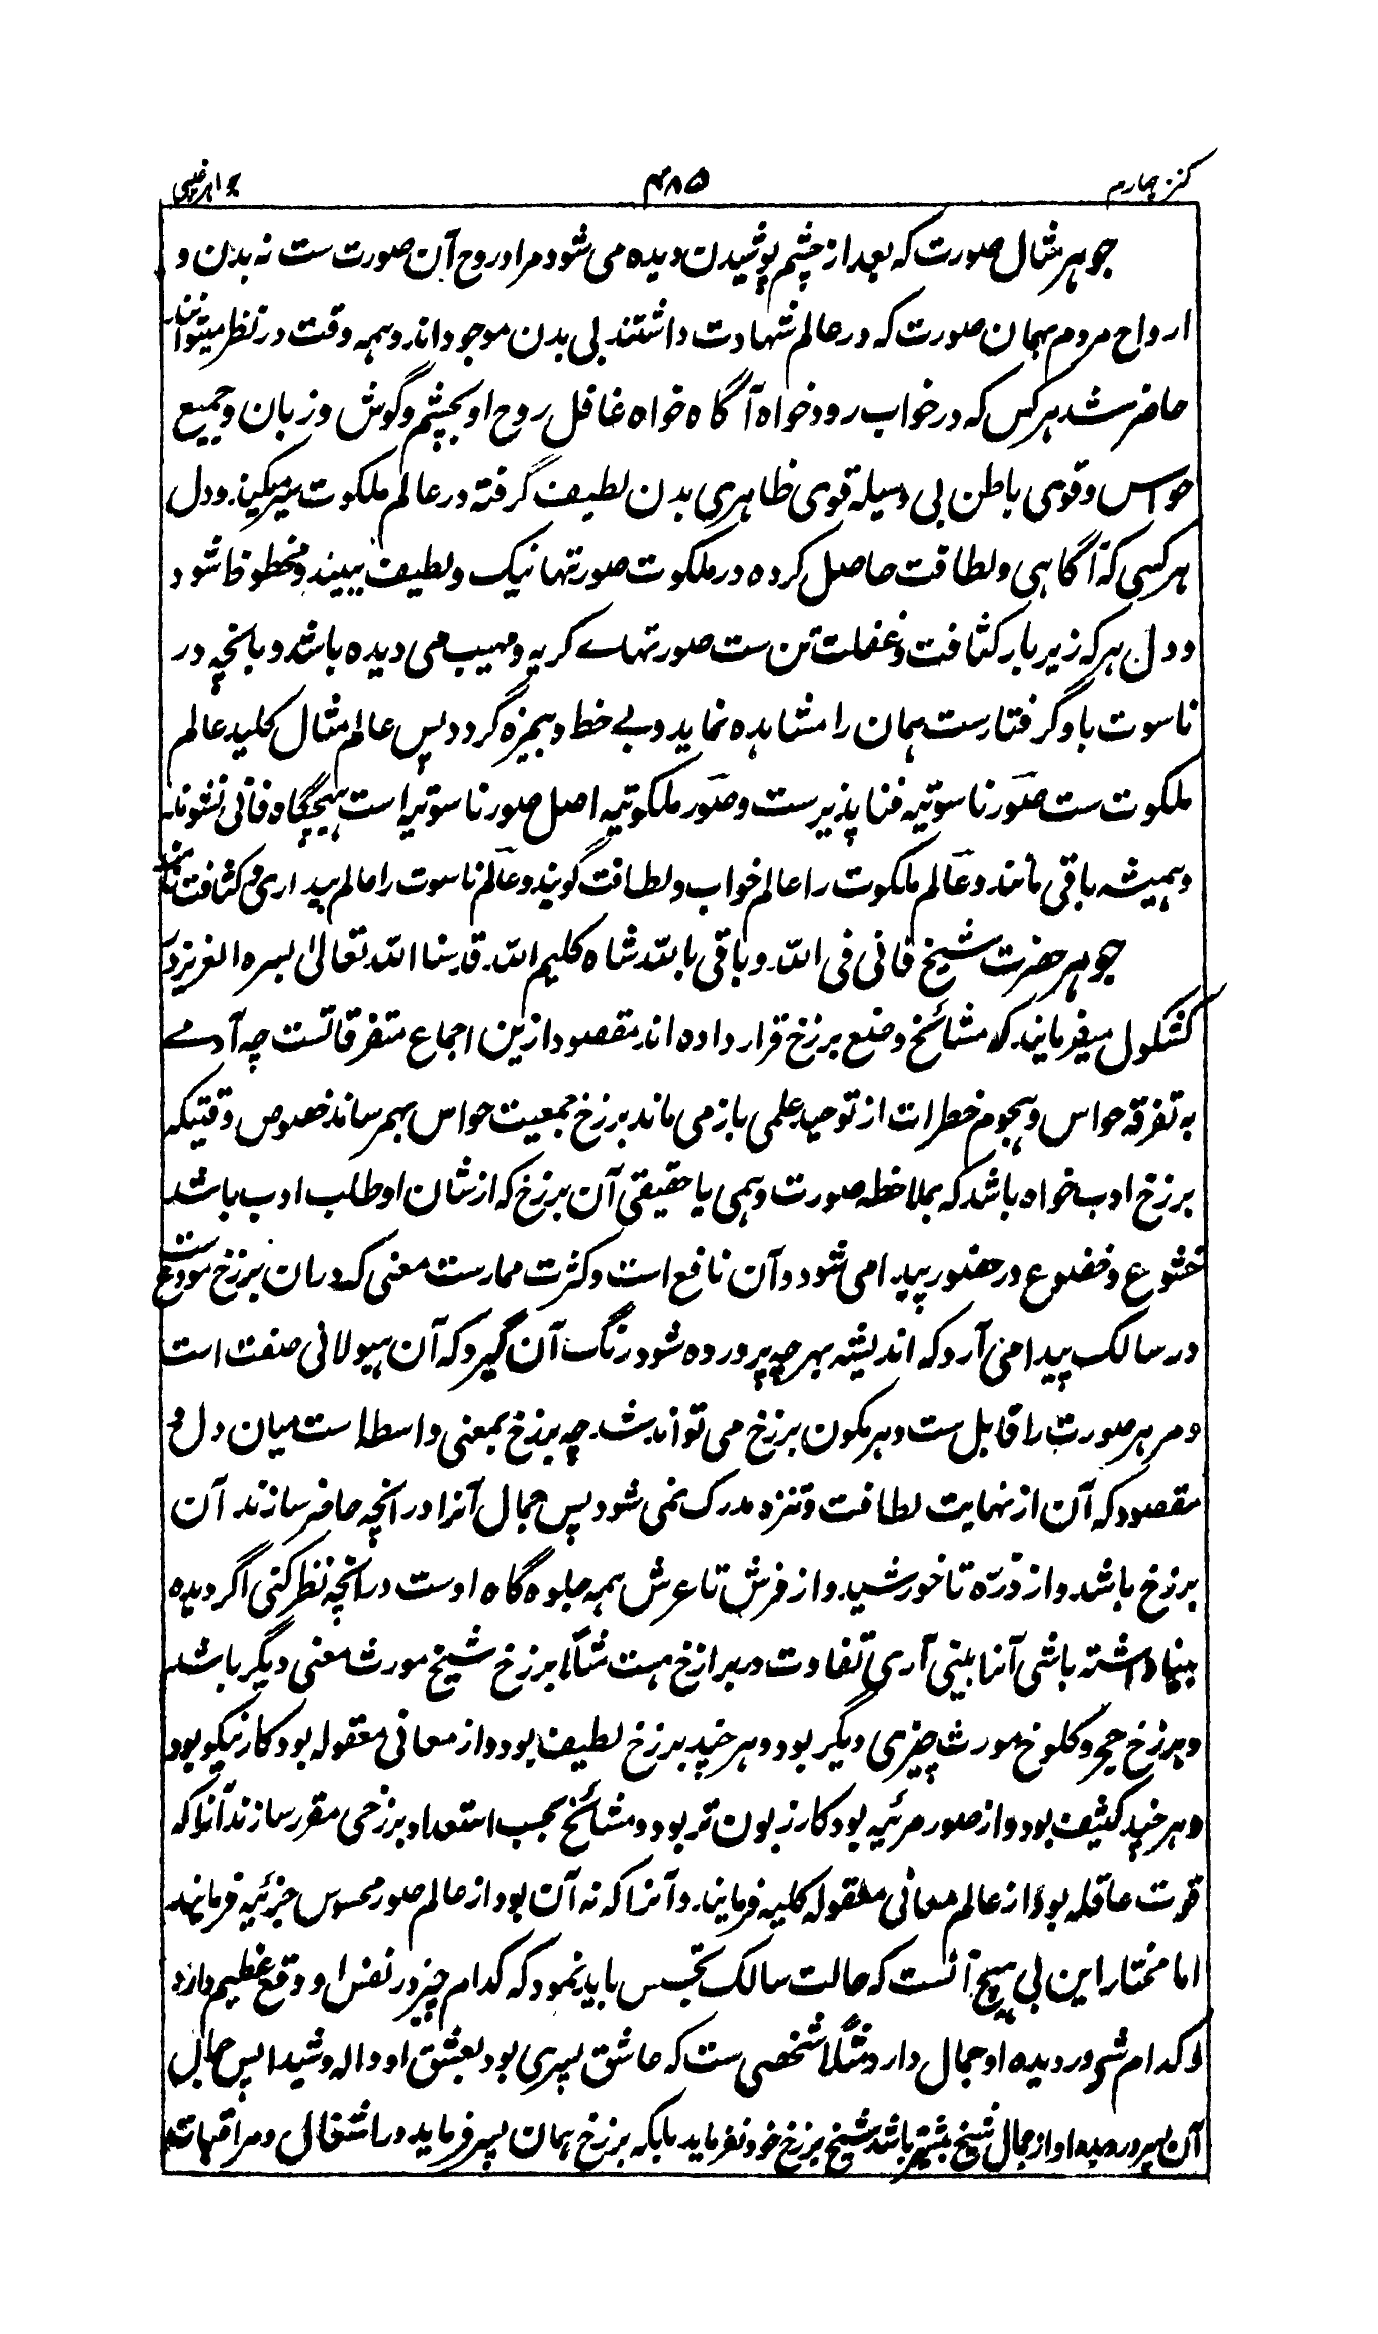 کنز چهارم ۴۸۵ جواهر غیبی
جوهر مثال صورت که بعد از چشم پوشیدن دیده می شود مراد روح آن صورت ست نه بدن و
ارواح مردم بهمان صورت که در عالم شهادت داشتند بی بدن موجود اند و همه وقت در نظر میتوانند
حاضر شد هر کس که در خواب رود خواه آگاه خواه غافل روح او بچشم و گوش و زبان و جمیع
حواس و قوی باطن بی وسیله قوی ظاهری بدن لطیف گرفته در عالم ملکوت سیر میکند و دل
هر کسی که آگاهی و لطافت حاصل کرده در ملکوت صورتها نیک و لطیف ببیند و محظوظ شود
و دل هر که زیر بار کثافت و غفلت تن ست صورتهاے کریه و مهیب می دیده باشد و بانچه در
ناسوت باو گرفتارست همان را مشاهده نماید و بے حظ و بیمزه گردد پس عالم مثال کلید عالم
ملکوت ست صور ناسوتیه فنا پذیر ست و صور ملکوتیه اصل صور ناسوتیه است هیچگاه فانی نشوند
و همیشه باقی مانند و عالم ملکوت را عالم خواب و لطافت گویند و عالم ناسوت را عالم بیداری و کثافت
جوهر حضرت شیخ فانی فی الله و باقی بالله شاه کلیم الله قدسنا الله تعالیٰ بسره العزیز در
کشکول میفرمایند که مشائخ وضع برزخ قرار داده اند مقصود ازین اجماع متفرقاتست چه آدمے
به تفرقه حواس و هجوم خطرات از توحید علمی باز می ماند برزخ جمعیت حواس بهم رساند خصوص وقتیکه
برزخ ادب خواه باشد که بملاحظه صورت وهمی یا حقیقی آن برزخ که از شان او طلب ادب باشد
خشوع و خضوع در حضور پیدا می شود و آن نافع است و کثرت ممارست معنی که دران برزخ مودع ست
در سالک پیدا می آرد که اندیشه بهر چه پرورده شود رنگ آن گیرد که آن هیولانی صفت است
و مر هر صورت را قابل ست و هر مکون برزخ می تواند شد چه برزخ بمعنی واسطه است میان دل و
مقصود که آن از نهایت لطافت و تنزه مدرک نمی شود پس جمال آنرا در انچه حاضر سازند آن
برزخ باشد و از ذرّه تا خورشید و از فرش تا عرش همه جلوه گاه اوست در انچه نظر کنی اگر دیده
بینا داشته باشی آنرا بینی آری تفاوت در برازخ هست مثلاً برزخ شیخ مورث معنی دیگر باشد
و برزخ حجر و کلوخ مورث چیزی دیگر بود و هر چند برزخ لطیف بود و از معانی معقوله بود کار نیکو بود
و هر چند کثیف بود و از صور مرئیه بود کار زبون تر بود و مشائخ بحسب استعداد برزخی مقرر سازند آنرا که
قوت عاقله بود از عالم معانی معقوله کلیه فرمایند و آنرا که نه آن بود از عالم صور محسوس جزئیه فرمایند
اما مختار این بی هیچ آنست که حالت سالک تجسس باید نمود که کدام چیز در نفس او وقع عظیم دارد
و کدام شی در دیده او جمال دارد مثلاً شخصی ست که عاشق پسری بود بعشق او واله و شیدا پس جمال
آن پسر در دیده او از جمال شیخ بیشتر باشد شیخ برزخ خود نفرماید بلکه برزخ همان پسر فرماید در اشغال و مراقبات